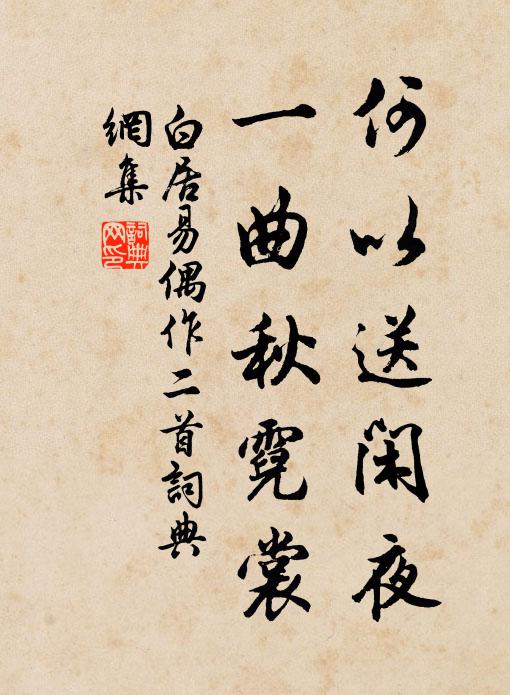 何以送閑夜
一曲秋霓裳
白居易偶作二首詞典
網集
詞典网印